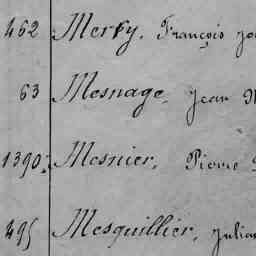 462 Merfy, François
63 Mesnage, Jean
1390. Mesnier, Pierre
495 Mesquillier, Julian